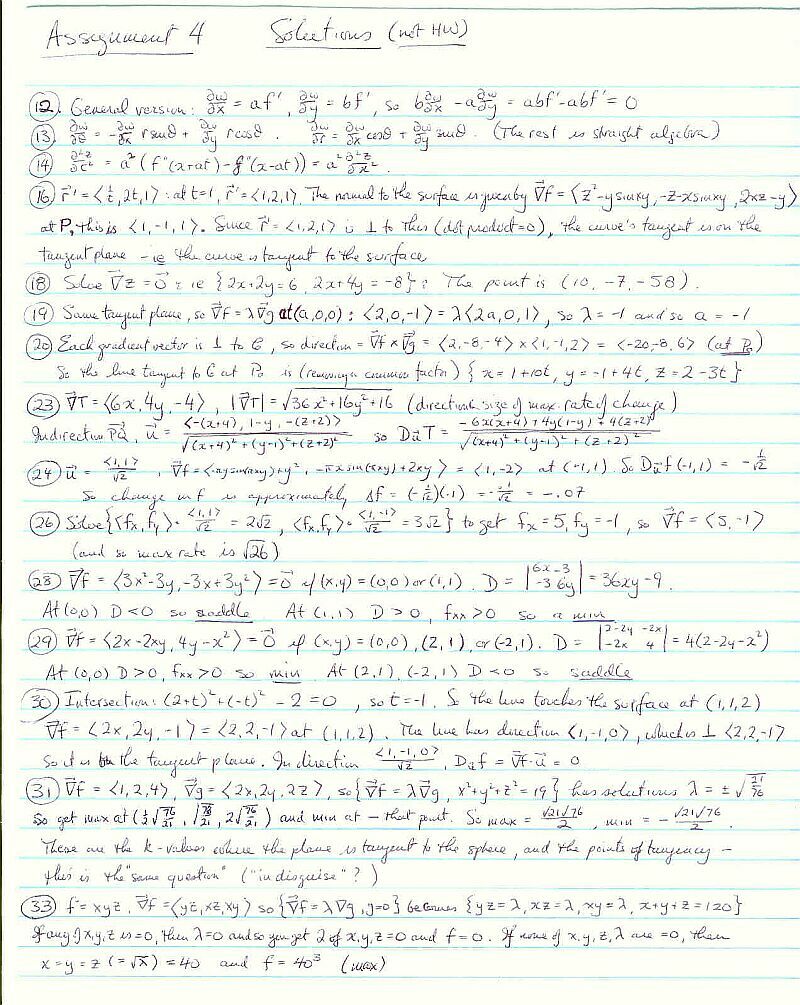 Assignment 4 Solutions (not HW)
12. General version: ∂w/∂x = af', ∂w/∂y = bf', so b∂w/∂x - a∂w/∂y = abf' - abf' = 0
13. ∂w/∂θ = -∂w/∂x r sinθ + ∂w/∂y r cosθ. ∂w/∂r = ∂w/∂x cosθ + ∂w/∂y sinθ. (The rest is straight algebra)
14. ∂²z/∂t² = a²(f''(x+at) - g''(x-at)) = a² ∂²z/∂x².
16. r⃗' = <1/t, 2t, 1>: at t=1, r⃗' = <1,2,1>. The normal to the surface is given by ∇⃗f = <z²-y sinxy, -z-x sinxy, 2xz-y>
at P₀ this is <1,-1,1>. Since r⃗' = <1,2,1> is ⊥ to this (dot product=0), the curve's tangent is on the
tangent plane - ie the curve is tangent to the surface
18 Solve ∇⃗z = 0⃗: ie {2x+2y=6, 2x+4y=-8}: The point is (10, -7, -58).
19 Same tangent plane, so ∇⃗f = λ∇⃗g at (a,0,0): <2,0,-1> = λ<2a,0,1>, so λ = -1 and so a = -1
20 Each gradient vector is ⊥ to C, so direction = ∇⃗f × ∇⃗g = <2,-8,-4> × <1,-1,2> = <-20,-8,6> (at P₀)
So the line tangent to C at P₀ is (removing a common factor) {x = 1+10t, y = -1+4t, z = 2-3t}
23 ∇⃗T = <6x, 4y, -4>, |∇⃗T| = √(36x²+16y²+16) (direction & size of max. rate of change)
In direction PQ⃗, u⃗ = <-(x+4), 1-y, -(z+2)>/√((x+4)²+(y-1)²+(z+2)²) so D_u⃗T = (-6x(x+4)+4y(1-y)+4(z+2))/√((x+4)²+(y-1)²+(z+2)²)
24 u⃗ = <1,1>/√2, ∇⃗f = <-πy sin(πxy)+y², -πx sin(πxy)+2xy> = <1,-2> at (-1,1). So D_u⃗f(-1,1) = -1/√2
So change in f is approximately Δf = (-1/√2)(.1) = -.1/√2 = -.07
26 Solve {<fx,fy>·<1,1>/√2 = 2√2, <fx,fy>·<1,-1>/√2 = 3√2} to get fx = 5, fy = -1, so ∇⃗f = <5,-1>
(and so max rate is √26)
28 ∇⃗f = <3x²-3y, -3x+3y²> = 0⃗ if (x,y) = (0,0) or (1,1). D = |6x -3; -3 6y| = 36xy - 9.
At (0,0) D<0 so saddle At (1,1) D>0, fxx>0 so a min
29 ∇⃗f = <2x-2xy, 4y-x²> = 0⃗ if (x,y) = (0,0), (2,1), or (-2,1). D = |2-2y -2x; -2x 4| = 4(2-2y-x²)
At (0,0) D>0, fxx>0 so min At (2,1), (-2,1) D<0 so saddle
30 Intersection: (2+t)²+(-t)² - 2 = 0, so t = -1. So the line touches the surface at (1,1,2)
∇⃗f = <2x, 2y, -1> = <2,2,-1> at (1,1,2). The line has direction <1,-1,0>, which is ⊥ <2,2,-1>
So it is on the tangent plane. In direction <1,-1,0>/√2, D_u⃗f = ∇⃗f·u⃗ = 0
31 ∇⃗f = <1,2,4>, ∇⃗g = <2x,2y,2z>, so {∇⃗f = λ∇⃗g, x²+y²+z²=19} has solutions λ = ±√(21/76)
So get max at (½√(76/21), √(76/21), 2√(76/21)) and min at - that point. So max = √21√76/2, min = -√21√76/2.
These are the k-values where the plane is tangent to the sphere, and the points of tangency -
this is the "same question" ("in disguise"?)
33 f = xyz, ∇⃗f = <yz, xz, xy> so {∇⃗f = λ∇⃗g, g=0} becomes {yz=λ, xz=λ, xy=λ, x+y+z=120}
If any of x,y,z is =0, then λ=0 and so you get 2 of x,y,z=0 and f=0. If none of x,y,z,λ are =0, then
x=y=z (=√λ) = 40 and f = 40³ (max)